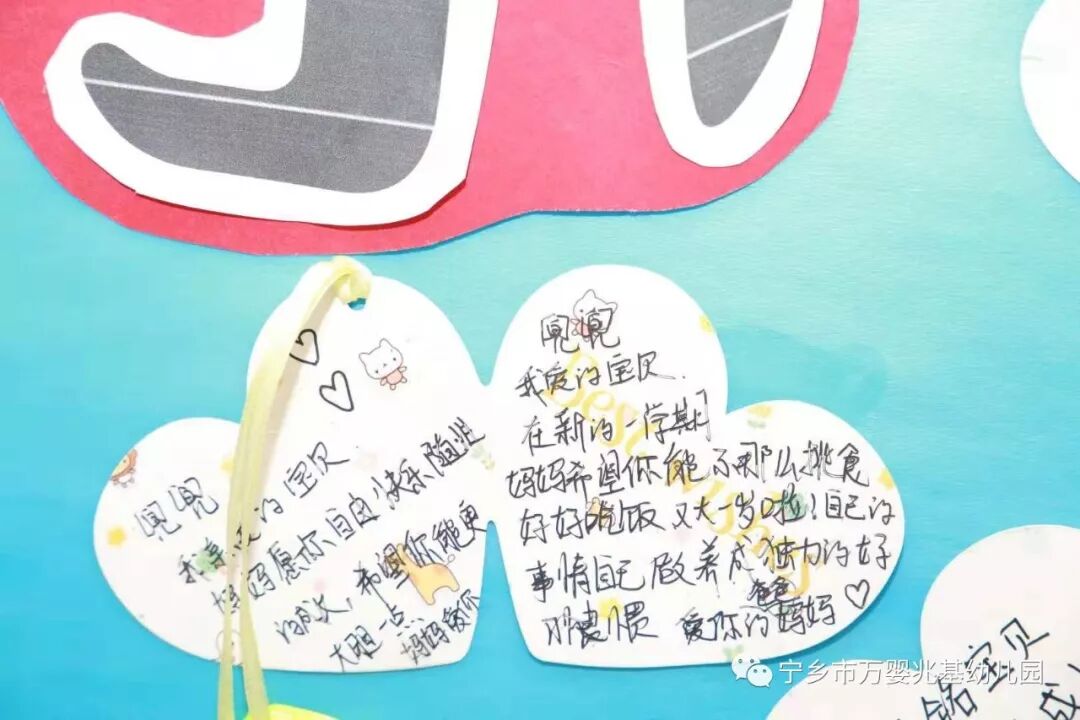 兜兜
我亲爱的宝贝
妈妈愿你自由快乐随性
的成长，希望你能更
大胆一点 妈妈爱你
兜兜
我爱的宝贝
在新的一学期
妈妈希望你能不那么挑食
好好吃饭 又大一岁啦！自己的
事情自己做 养成独力的好
习惯 爱你的爸爸妈妈
宁乡市万婴兆基幼儿园
宝贝
成